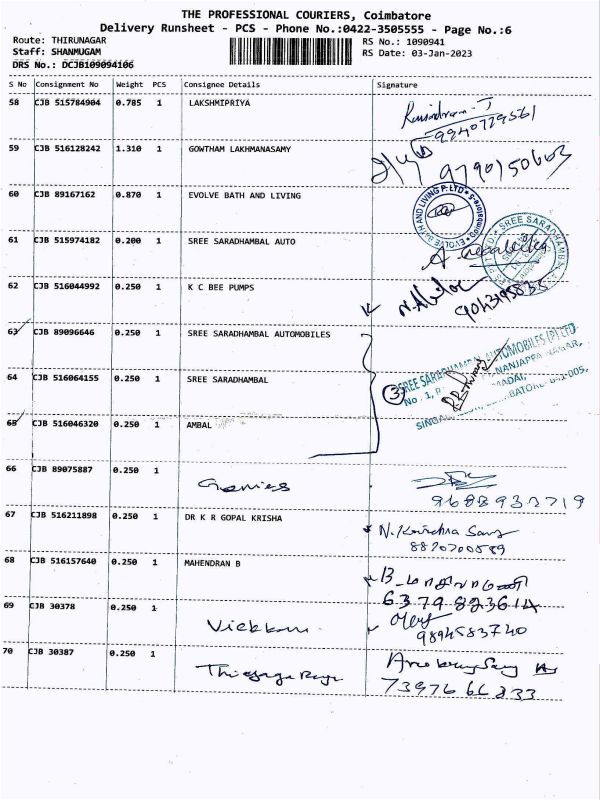 THE PROFESSIONAL COURIERS, Coimbatore
Delivery Runsheet - PCS - Phone No.:0422-3505555 - Page No.:6
Route: THIRUNAGAR
Staff: SHANMUGAM
DRS No.: DCJB109094106
RS No.: 1090941
RS Date: 03-Jan-2023
S No Consignment No Weight PCS Consignee Details Signature
58 CJB 515784904 0.785 1 LAKSHMIPRIYA
59 CJB 516128242 1.310 1 GOWTHAM LAKHMANASAMY
9790150603
60 CJB 89167162 0.870 1 EVOLVE BATH AND LIVING
EVOLVE BATH AND LIVING P.LTD Coimbatore-5
61 CJB 515974182 0.200 1 SREE SARADHAMBAL AUTO
SREE SARADHAMBAL
62 CJB 516044992 0.250 1 K C BEE PUMPS
63 CJB 89096646 0.250 1 SREE SARADHAMBAL AUTOMOBILES
64 CJB 516064155 0.250 1 SREE SARADHAMBAL
3
SREE SARADHAMBAL AUTOMOBILES (P) LTD
No : 1, NANJAPPA NAGAR,
65 CJB 516046320 0.250 1 AMBAL
66 CJB 89075887 0.250 1 Genies
9688932719
67 CJB 516211898 0.250 1 DR K R GOPAL KRISHA
N. Krishna Samy
8870700589
68 CJB 516157640 0.250 1 MAHENDRAN B
69 CJB 30378 0.250 1
9894583740
70 CJB 30387 0.250 1